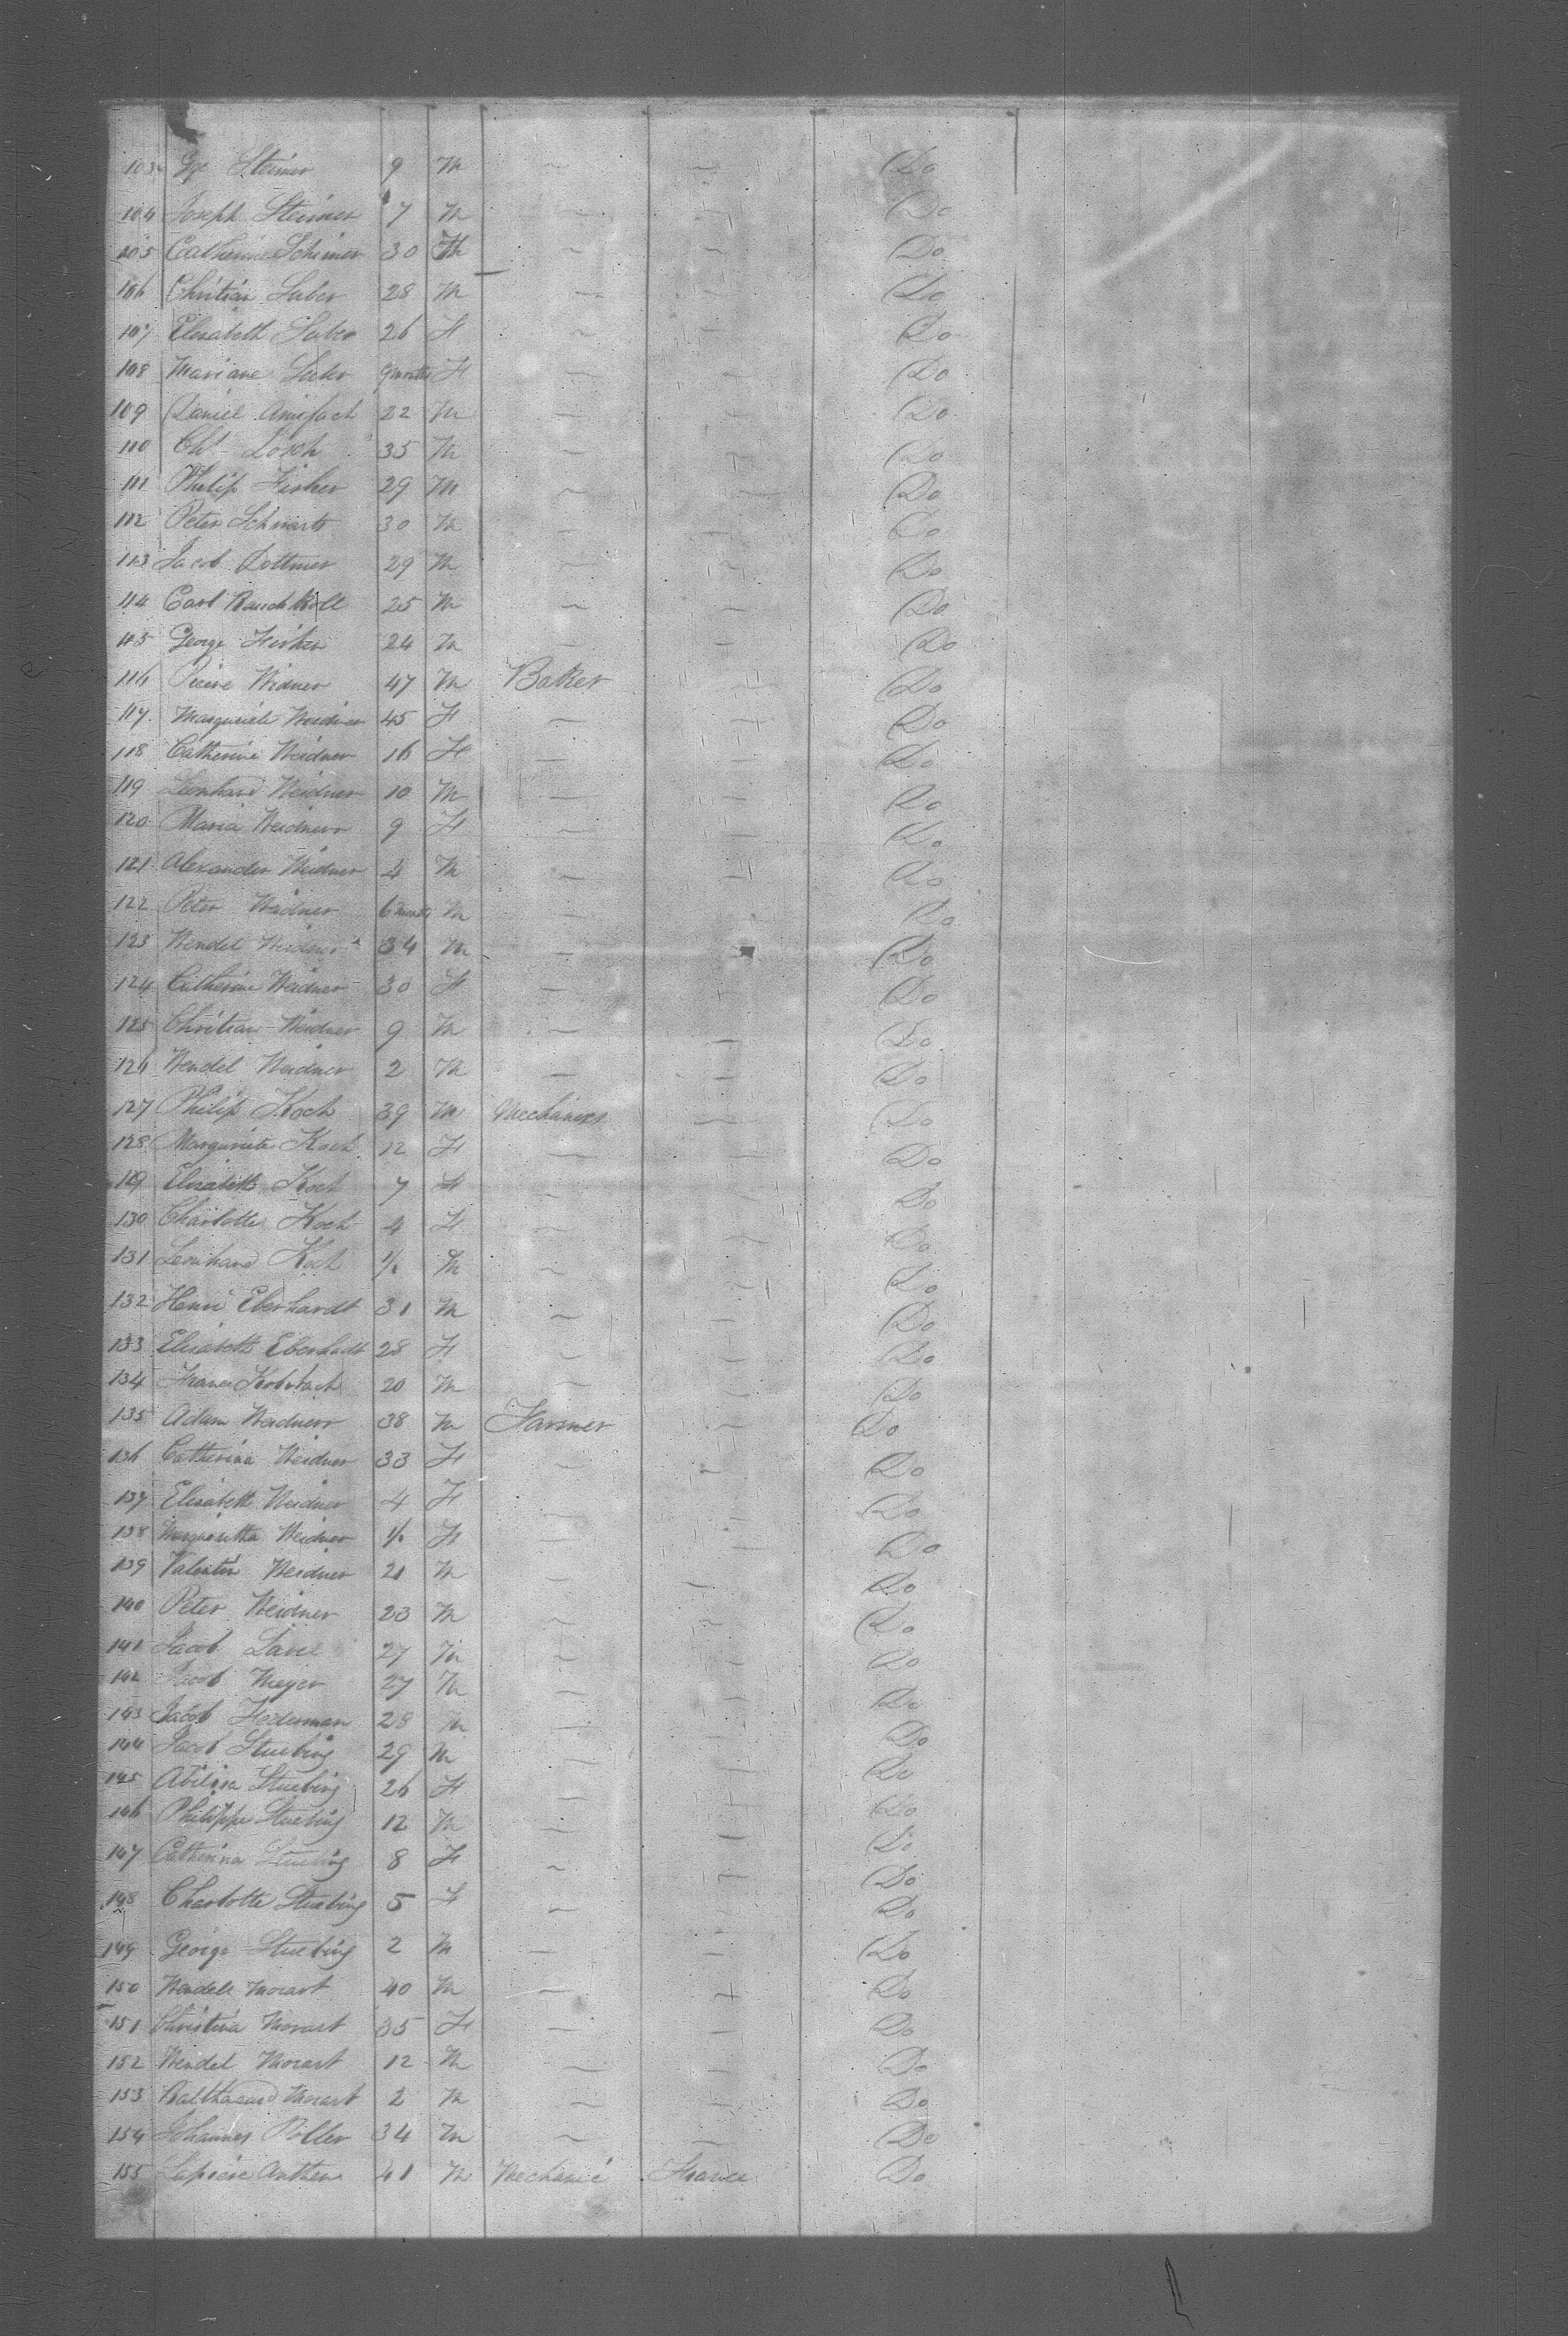 103 Geo Steimer 9 M ~ ~ Do
104 Joseph Steimer 7 M ~ ~ Do
105 Catherine Schimer 30 ~ ~ Do
106 Chritian Suber 28 M ~ ~ Do
107 Elisabeth Suber 26 F ~ ~ Do
108 Mariane Suber 9 months F ~ ~ Do
109 Daniel 22 M ~ ~ Do
110 Chs Losch 35 M ~ ~ Do
111 Philip Fisher 29 M ~ ~ Do
112 Peter Schwarts 30 M ~ ~ Do
113 Jacob Dottmer 29 M ~ ~ Do
114 Carl 25 M ~ ~ Do
115 George 24 M ~ ~ Do
116 Pierre Widner 47 M Baker ~ Do
117 Marguriete Weidner 45 F ~ ~ Do
118 Catherine Weidner 16 F ~ ~ Do
119 Leonhard Weidner 10 M ~ ~ Do
120 Maria Weidner 9 F ~ ~ Do
121 Alexander Weidner 4 M ~ ~ Do
122 Peter Weidner 6 months M ~ ~ Do
123 Wendel Weidner 34 M ~ ~ Do
124 Catherine Weidner 30 F ~ ~ Do
125 Chretian Weidner 9 M ~ ~ Do
126 Wendel Weidner 2 M ~ ~ Do
127 Philip Koch 39 M ~ Do
128 Marguriete Koch 12 F ~ ~ Do
129 Elisabeth Koch 7 F ~ ~ Do
130 Charlotte Koch 4 F ~ ~ Do
131 Leonhard Koch M ~ ~ Do
132 Henri Eberhardt 31 M ~ ~ Do
133 Elisabeth Eberhadt 28 F ~ ~ Do
134 20 M ~ ~ Do
135 Adam Weidner 38 M Farmer ~ Do
136 Catherina Weidner 33 F ~ ~ Do
137 Elisabeth Weidner 4 F ~ ~ Do
138 Margueritha Weidner F ~ ~ Do
139 Valentin Weidner 21 M ~ ~ Do
140 Peter Weidner 23 M ~ ~ Do
141 Jacob 27 M ~ ~ Do
142 Jacob Meyer 27 M ~ ~ Do
143 Jacob Federman 28 M ~ ~ Do
144 Jacob Stuebing 29 M ~ ~ Do
145 Stuebing 26 F ~ ~ Do
146 Philippe Stuebing 12 M ~ ~ Do
147 Catherina Stuebing 8 F ~ ~ Do
148 Charlotte Stuebing 5 F ~ ~ Do
149 George Stuebing 2 M ~ ~ Do
150 Wendell Morart 40 M ~ ~ Do
151 Christina Morart 35 F ~ ~ Do
152 Wendel Morart 12 M ~ ~ Do
153 Balthasard Morart 2 M ~ ~ Do
154 Johannes Poller 34 M ~ ~ Do
155 41 M Mechanic France Do